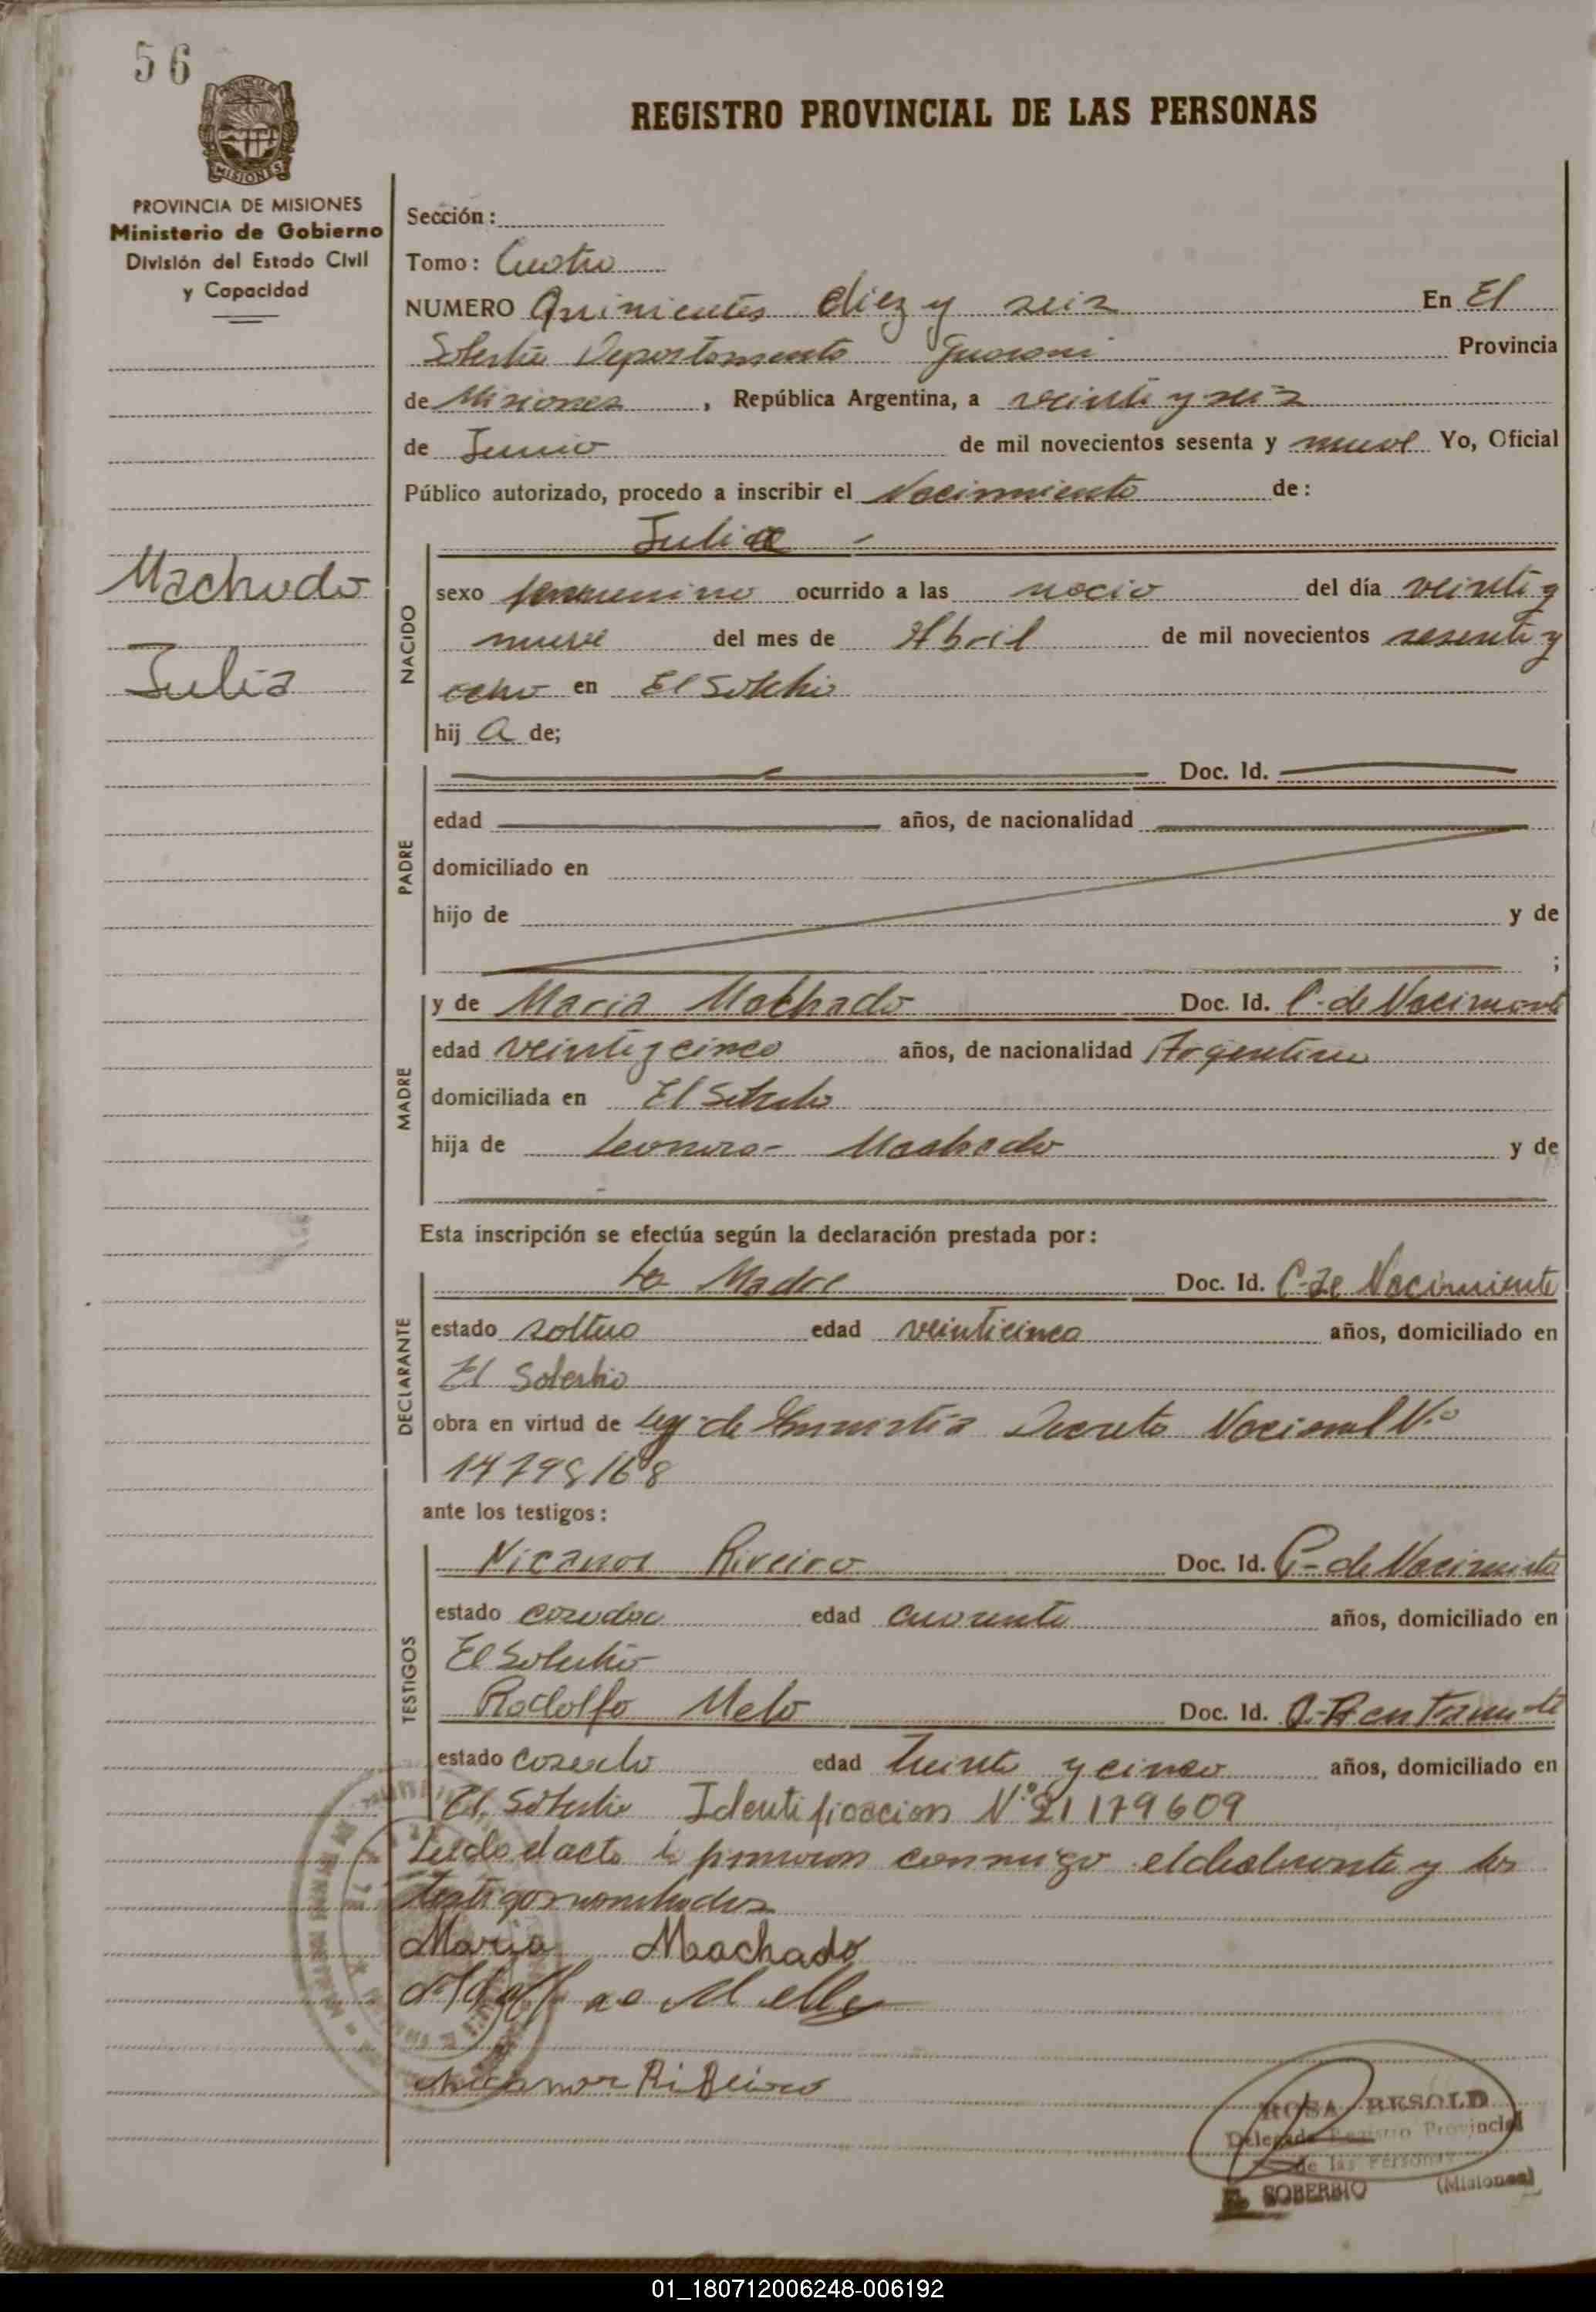 56
REGISTRO PROVINCIAL DE LAS PERSONAS
MISIONES
PROVINCIA DE MISIONES
Ministerio de Gobierno
División del Estado Civil
y Capacidad
Machado
Julia
Sección:
Tomo: Cuatro
NUMERO Quinientos diez y seis En El
Soberbio Departamento Guarani Provincia
de Misiones, República Argentina, a veinti y seis
de Junio de mil novecientos sesenta y nueve Yo, Oficial
Público autorizado, procedo a inscribir el Nacimiento de:
Julia
NACIDO
sexo femenino ocurrido a las del día veinti y
nueve del mes de Abril de mil novecientos sesenta y
ocho en El Soberbio
hij a de;
PADRE
Doc. Id.
edad años, de nacionalidad
domiciliado en
hijo de y de
;
MADRE
y de Maria Machado Doc. Id. C. de Nacimiento
edad veintiy cinco años, de nacionalidad Argentina
domiciliada en El Soberbio
hija de Leonora Machado y de
Esta inscripción se efectúa según la declaración prestada por:
DECLARANTE
La Madre Doc. Id. C. de Nacimiento
estado soltera edad veinticinco años, domiciliado en
El Soberbio
obra en virtud de Ley de Amnistia Decreto Nacional N.º
ante los testigos:
TESTIGOS
Nicanor Riveiro Doc. Id. C. de Nacimiento
estado casado edad cuarenta años, domiciliado en
El Soberbio
Rodolfo Melo Doc. Id.
estado casado edad treinta y cinco años, domiciliado en
El Soberbio Identificacion Nº 21179609
Leido el acta la firmaron conmigo el declarante y los
testigos nombrados
Maria Machado
Nicanor Ribeiro
ROSA BESOLD
Delegada Registro Provincial
de las Personas
EL SOBERBIO (Misiones)
01_180712006248-006192